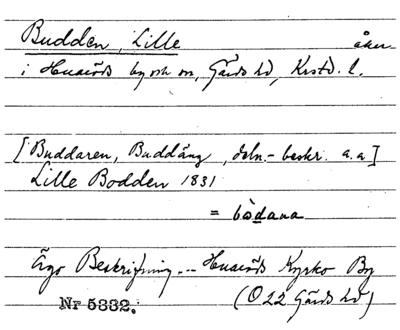 Budden, Lille åker
i Huaröds by och sn, Gärds hd, Krstd. l.
[Buddaren, Buddäng, deln.-beskr. a.a]
Lille Bodden 1831
= bòdana
Ego Beskrifning --- Huaröds Kyrko By
Nr 5332. (O 22 Gärds hd)